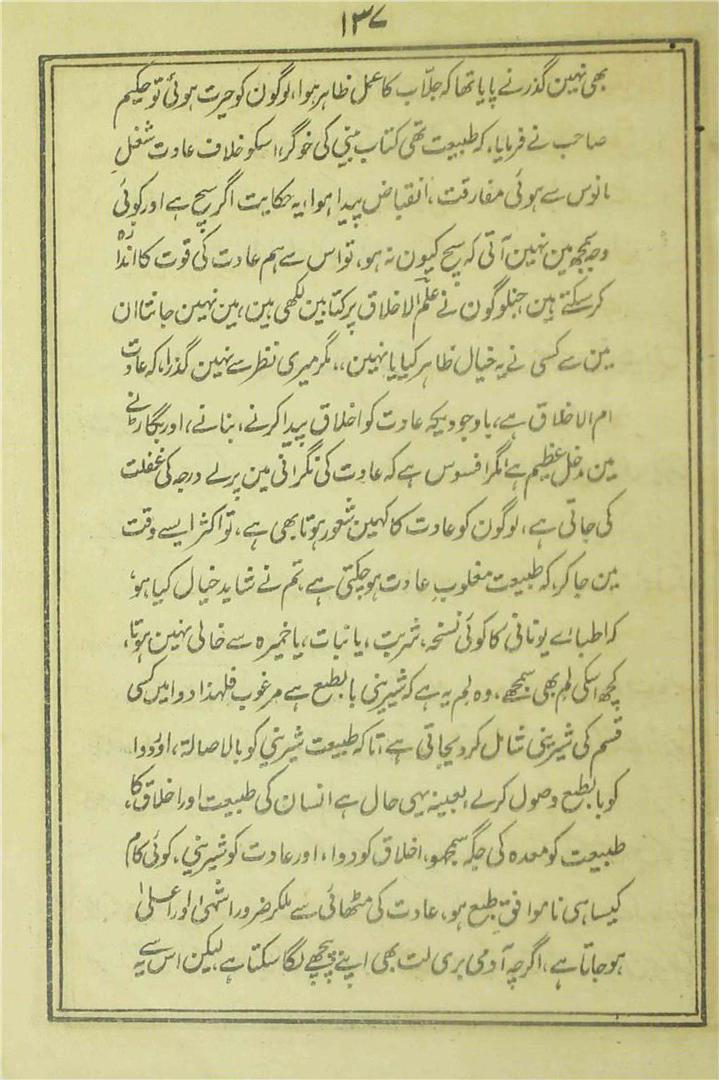 ۱۳۷
بھی نہین گذرنے پایا تھا کہ جلّاب کا عمل ظاہر ہوا، لوگون کو حیرت ہوئی تو حکیم
صاحب نے فرمایا، کہ طبیعت تھی کتاب بینی کی خوگر، اسکو خلاف عادت شغلِ
مانوس سے ہوئی مفارقت، انقباض پیدا ہوا، یہ حکایت اگر سچ ہے اور کوئی
وجہ سمجھ مین نہین آتی کہ سچ کیون نہ ہو، تو اس سے ہم عادت کی قوت کا اندازہ
کر سکتے ہین جنلوگون نے علم الاخلاق پر کتابین لکھی ہین، مین نہین جانتا ان
مین سے کسی نے یہ خیال ظاہر کیا یا نہین،، مگر میری نظر سے نہین گذرا، کہ عادت
ام الاخلاق ہے، باوجودیکہ عادت کو اخلاق پیدا کرنے، بنانے، اور بگاڑنے
مین دخل عظیم ہے مگر افسوس ہے کہ عادت کی نگرانی مین پرلے درجہ کی غفلت
کی جاتی ہے، لوگون کو عادت کا کہین شعور ہوتا بھی ہے، تو اکثر ایسے وقت
مین جا کر، کہ طبیعت مغلوبِ عادت ہو چکتی ہے، تم نے شاید خیال کیا ہو،
کہ اطباے یونانی کا کوئی نسخہ، شربت، یا نبات، یا خمیرہ سے خالی نہین ہوتا،
کچھ اسکی لِم بھی سمجھے، وہ لِم یہ ہے کہ شیرینی بالطبع ہے مرغوب فلہذا دوا مین کسی
قسم کی شیرینی شامل کر دیجاتی ہے، تا کہ طبیعت شیرینی کو بالاصالۃ، اور دوا
کو بالطبع وصول کرلے، بعینہ یہی حال ہے انسان کی طبیعت اور اخلاق کا،
طبیعت کو معدہ کی جگہ سمجھو، اخلاق کو دوا، اور عادت کو شیرینی، کوئی کام
کیسا ہی نا موافقِ طبع ہو، عادت کی مٹھائی سے ملکر ضرور اشہیٰ اور اعلیٰ
ہو جاتا ہے، اگرچہ آدمی بری لت بھی اپنے پیچھے لگا سکتا ہے لیکن اس سے یہ